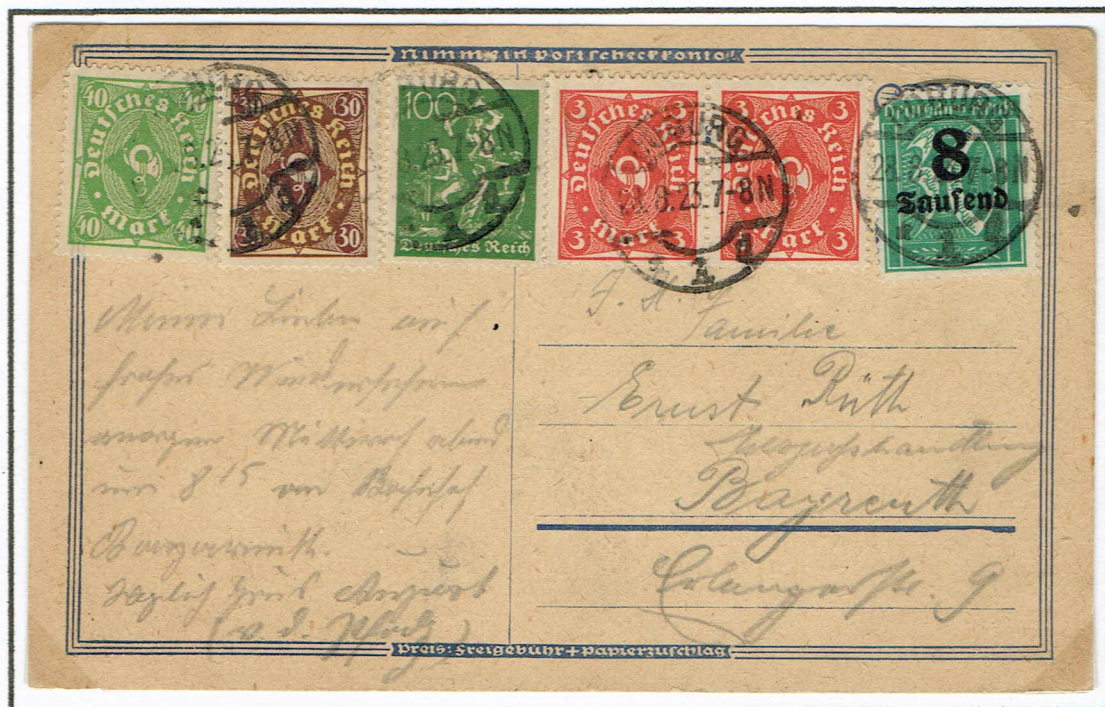 Nimm ein Postscheckkonto!
40 40
Deutsches Reich
Mark
40 40
30 30
Deutsches Reich
Mark
30 30
100
Deutsches Reich
3 3
Deutsches Reich
Mark
3 3
3 3
Deutsches Reich
Mark
3 3
Deutsches Reich
8
Tausend
BURG
28.8.23.7-8N
1 d
Meine Lieben auf
frohes Wiedersehen
morgen Mittwoch abend
um 8 15 am Bahnhof
Familie
Ernst Rüth
Bayreuth
Erlangerstr. 9
Preis: Freigebühr + Papierzuschlag